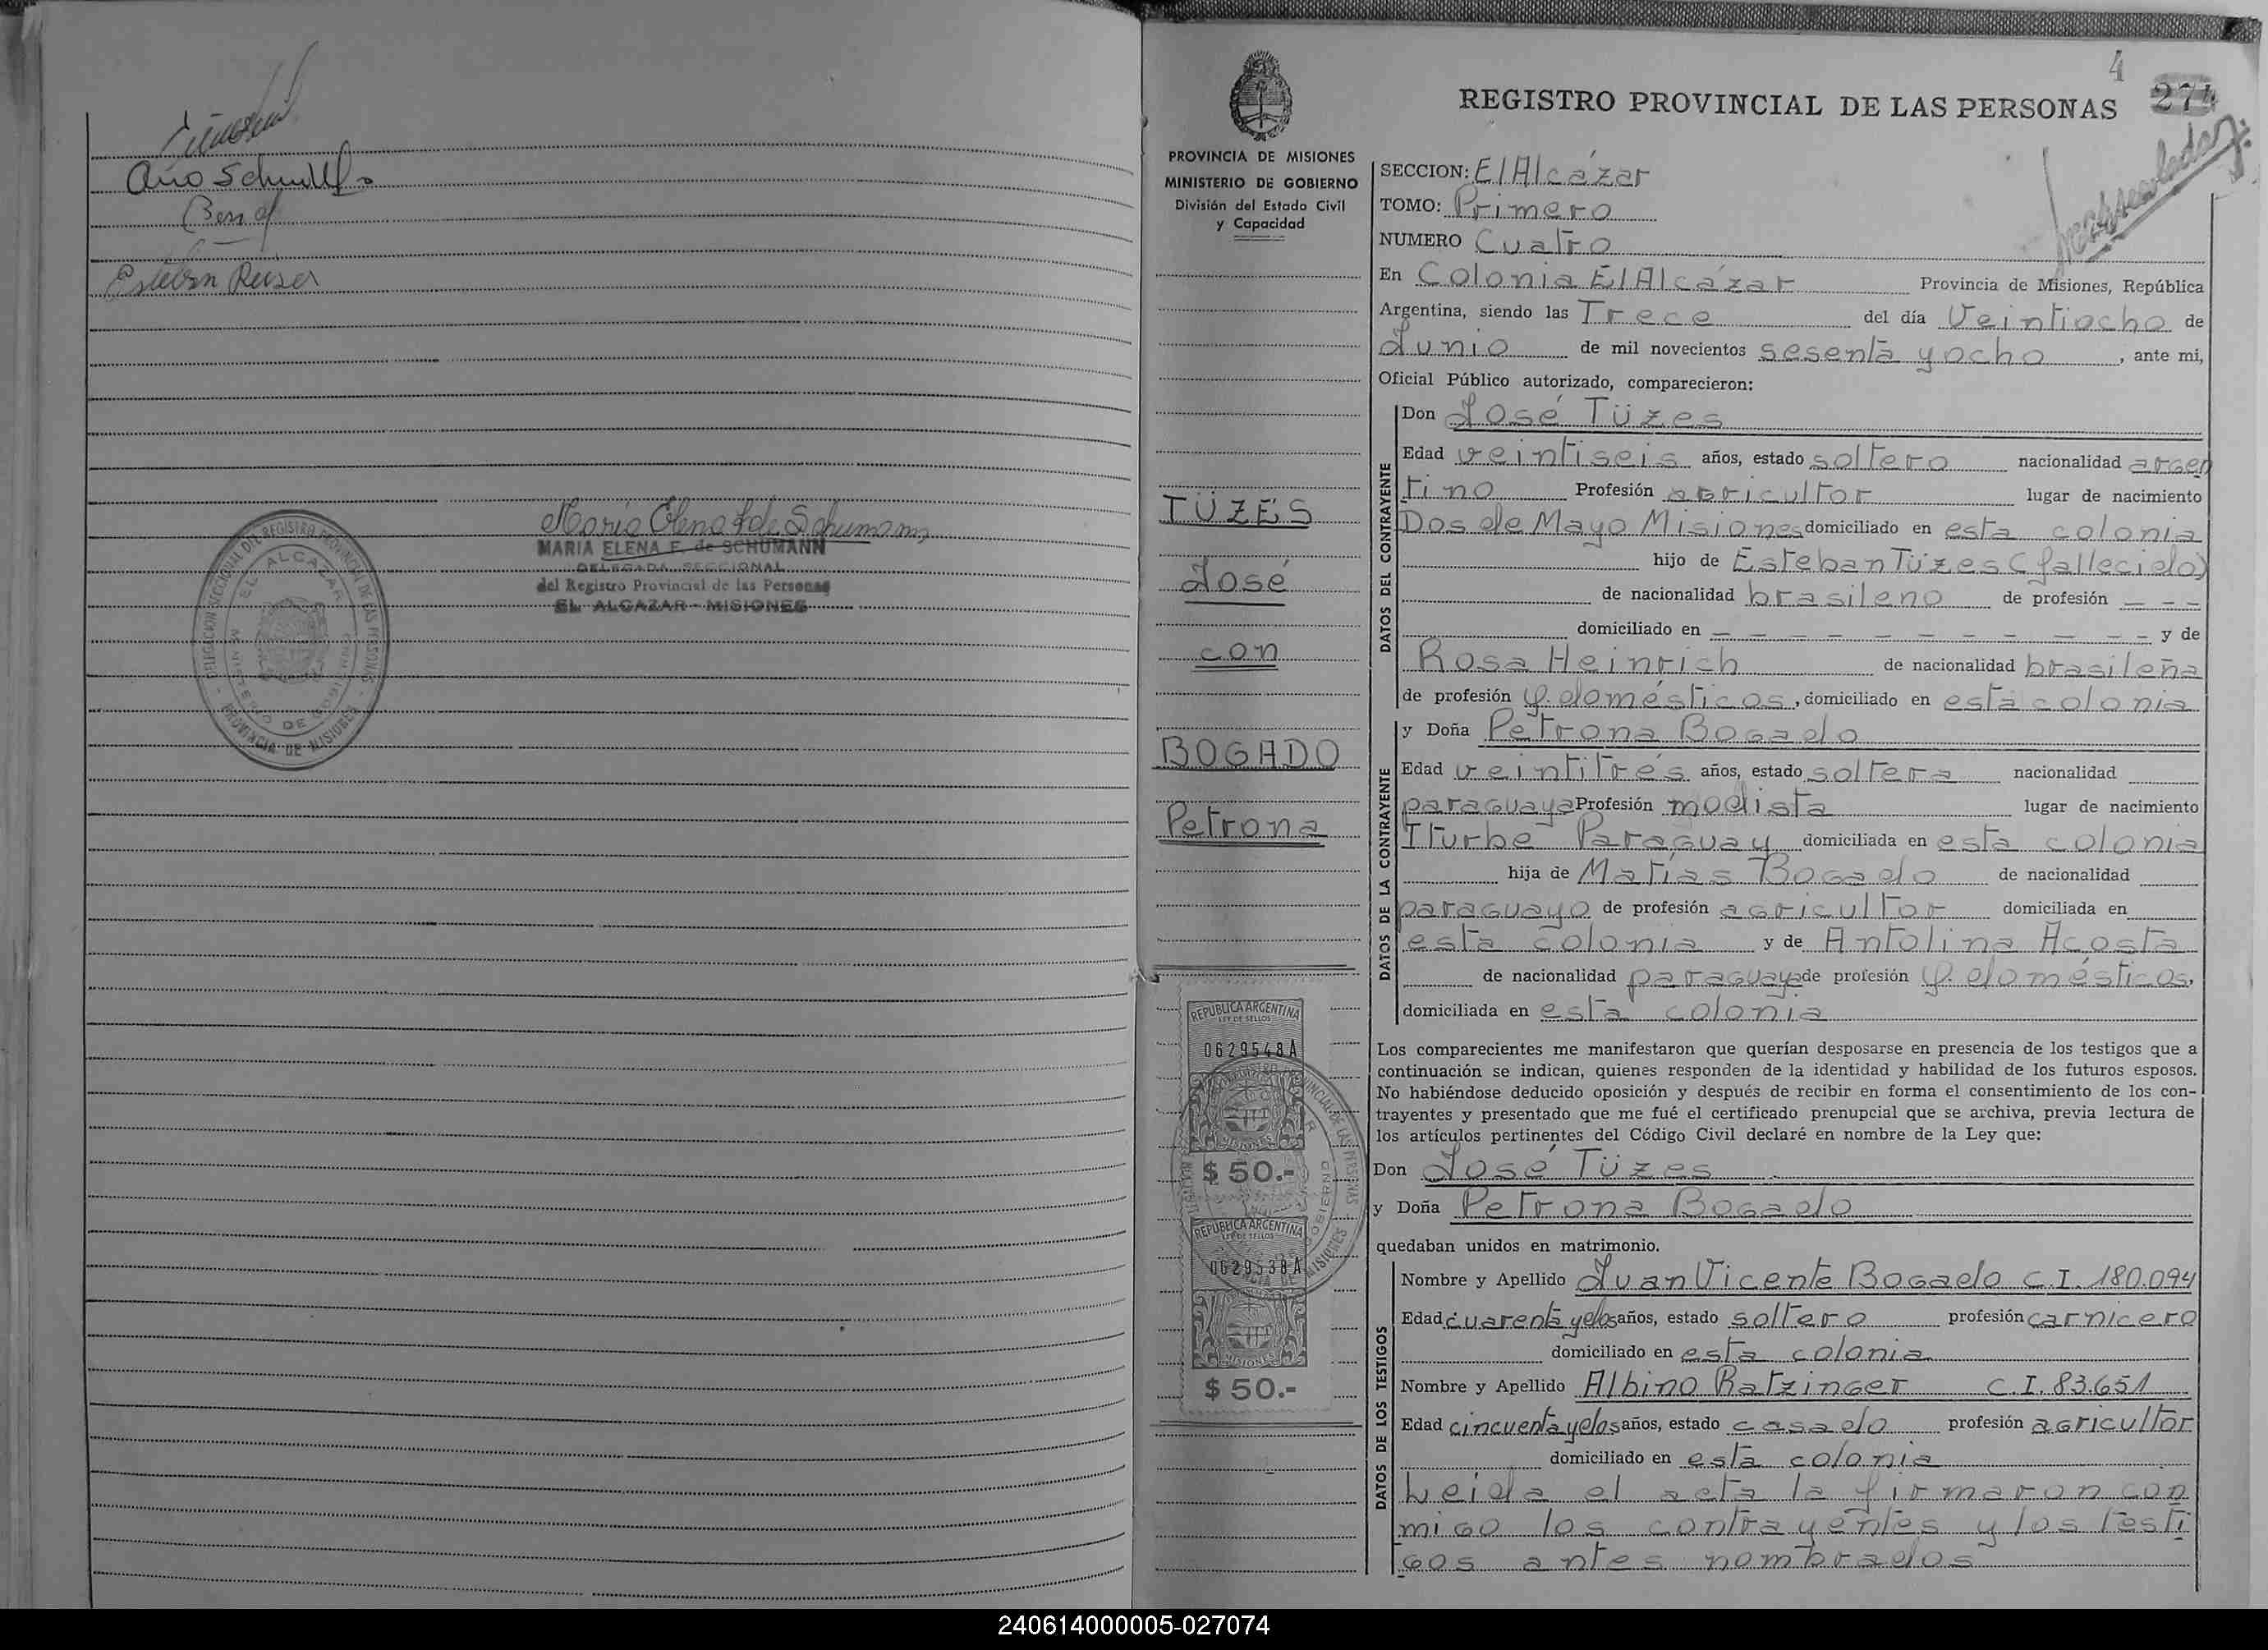 Esteban Reiser
Maria Elena F. de Schumann
MARIA ELENA F. de SCHUMANN
DELEGADA SECCIONAL
del Registro Provincial de las Personas
EL ALCAZAR - MISIONES
DELEGACION SECCIONAL DEL REGISTRO PROVINCIAL DE LAS PERSONAS
EL ALCAZAR
PROVINCIA DE MISIONES
4
REGISTRO PROVINCIAL DE LAS PERSONAS 274
PROVINCIA DE MISIONES
MINISTERIO DE GOBIERNO
División del Estado Civil
y Capacidad
TÜZES
José
con
BOGADO
Petrona
REPUBLICA ARGENTINA
LEY DE SELLOS
0629548A
MISIONES
$ 50.-
REPUBLICA ARGENTINA
LEY DE SELLOS
0629538A
MISIONES
$ 50.-
SECCION: El Alcázar
TOMO: Primero
NUMERO Cuatro
En Colonia El Alcázar Provincia de Misiones, República
Argentina, siendo las Trece del día Veintiocho de
Junio de mil novecientos sesenta y ocho, ante mi,
Oficial Público autorizado, comparecieron:
DATOS DEL CONTRAYENTE
Don José Tüzes
Edad veintiseis años, estado soltero nacionalidad argen
tino Profesión agricultor lugar de nacimiento
Dos de Mayo Misiones domiciliado en esta colonia
hijo de Esteban Tüzes (fallecido)
de nacionalidad brasileno de profesión - - -
domiciliado en - - - - - - - - - - - y de
Rosa Heinrich de nacionalidad brasileña
de profesión q. domésticos, domiciliado en esta colonia
DATOS DE LA CONTRAYENTE
y Doña Petrona Bogado
Edad veintitrés años, estado soltera nacionalidad
paraguaya Profesión modista lugar de nacimiento
Iturbe Paraguay domiciliada en esta colonia
hija de Matías Bogado de nacionalidad
paraguayo de profesión agricultor domiciliada en
esta colonia y de Antolina Acosta
de nacionalidad paraguaya de profesión q. domésticos,
domiciliada en esta colonia
Los comparecientes me manifestaron que querían desposarse en presencia de los testigos que a
continuación se indican, quienes responden de la identidad y habilidad de los futuros esposos.
No habiéndose deducido oposición y después de recibir en forma el consentimiento de los con-
trayentes y presentado que me fué el certificado prenupcial que se archiva, previa lectura de
los artículos pertinentes del Código Civil declaré en nombre de la Ley que:
Don José Tüzes
y Doña Petrona Bogado
quedaban unidos en matrimonio.
DATOS DE LOS TESTIGOS
Nombre y Apellido Juan Vicente Bogado C.I. 180.094
Edad cuarenta y dos años, estado soltero profesión carnicero
domiciliado en esta colonia
Nombre y Apellido Albino Ratzinger C.I. 83.651
Edad cincuenta y dos años, estado casado profesión agricultor
domiciliado en esta colonia
Leida el acta la firmaron con
migo los contrayentes y los testi
gos antes nombrados
240614000005-027074